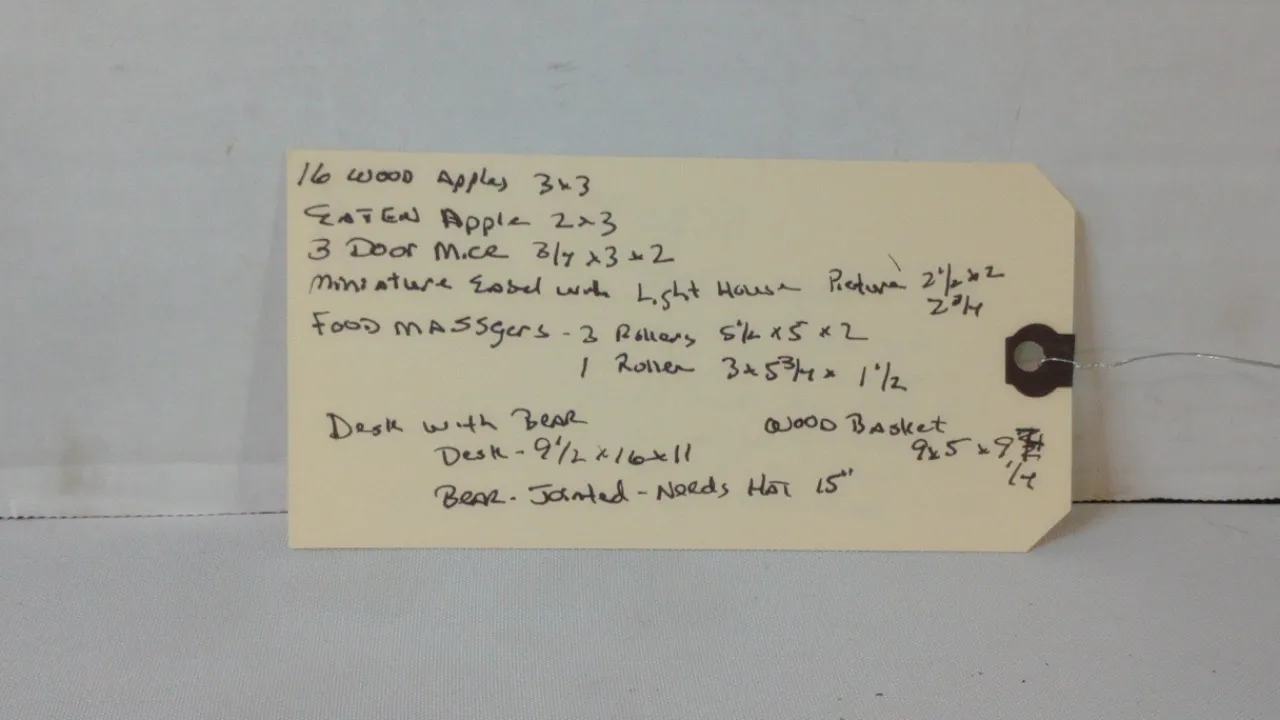 16 WOOD Apples 3x3
EATEN Apple 2x3
3 Door Mice 3/4 x 3 x 2
Miniature Easel with Light House Picture 2 1/2 x 2
2 3/4
FOOD MASSgers - 3 Rollers 5 1/2 x 5 x 2
1 Roller 3 x 5 3/4 x 1 1/2
Desk with BEAR
WOOD BASKET
Desk - 9 1/2 x 16 x 11
9x5 x 9
1/4
BEAR - Jointed - Needs HAT 15"